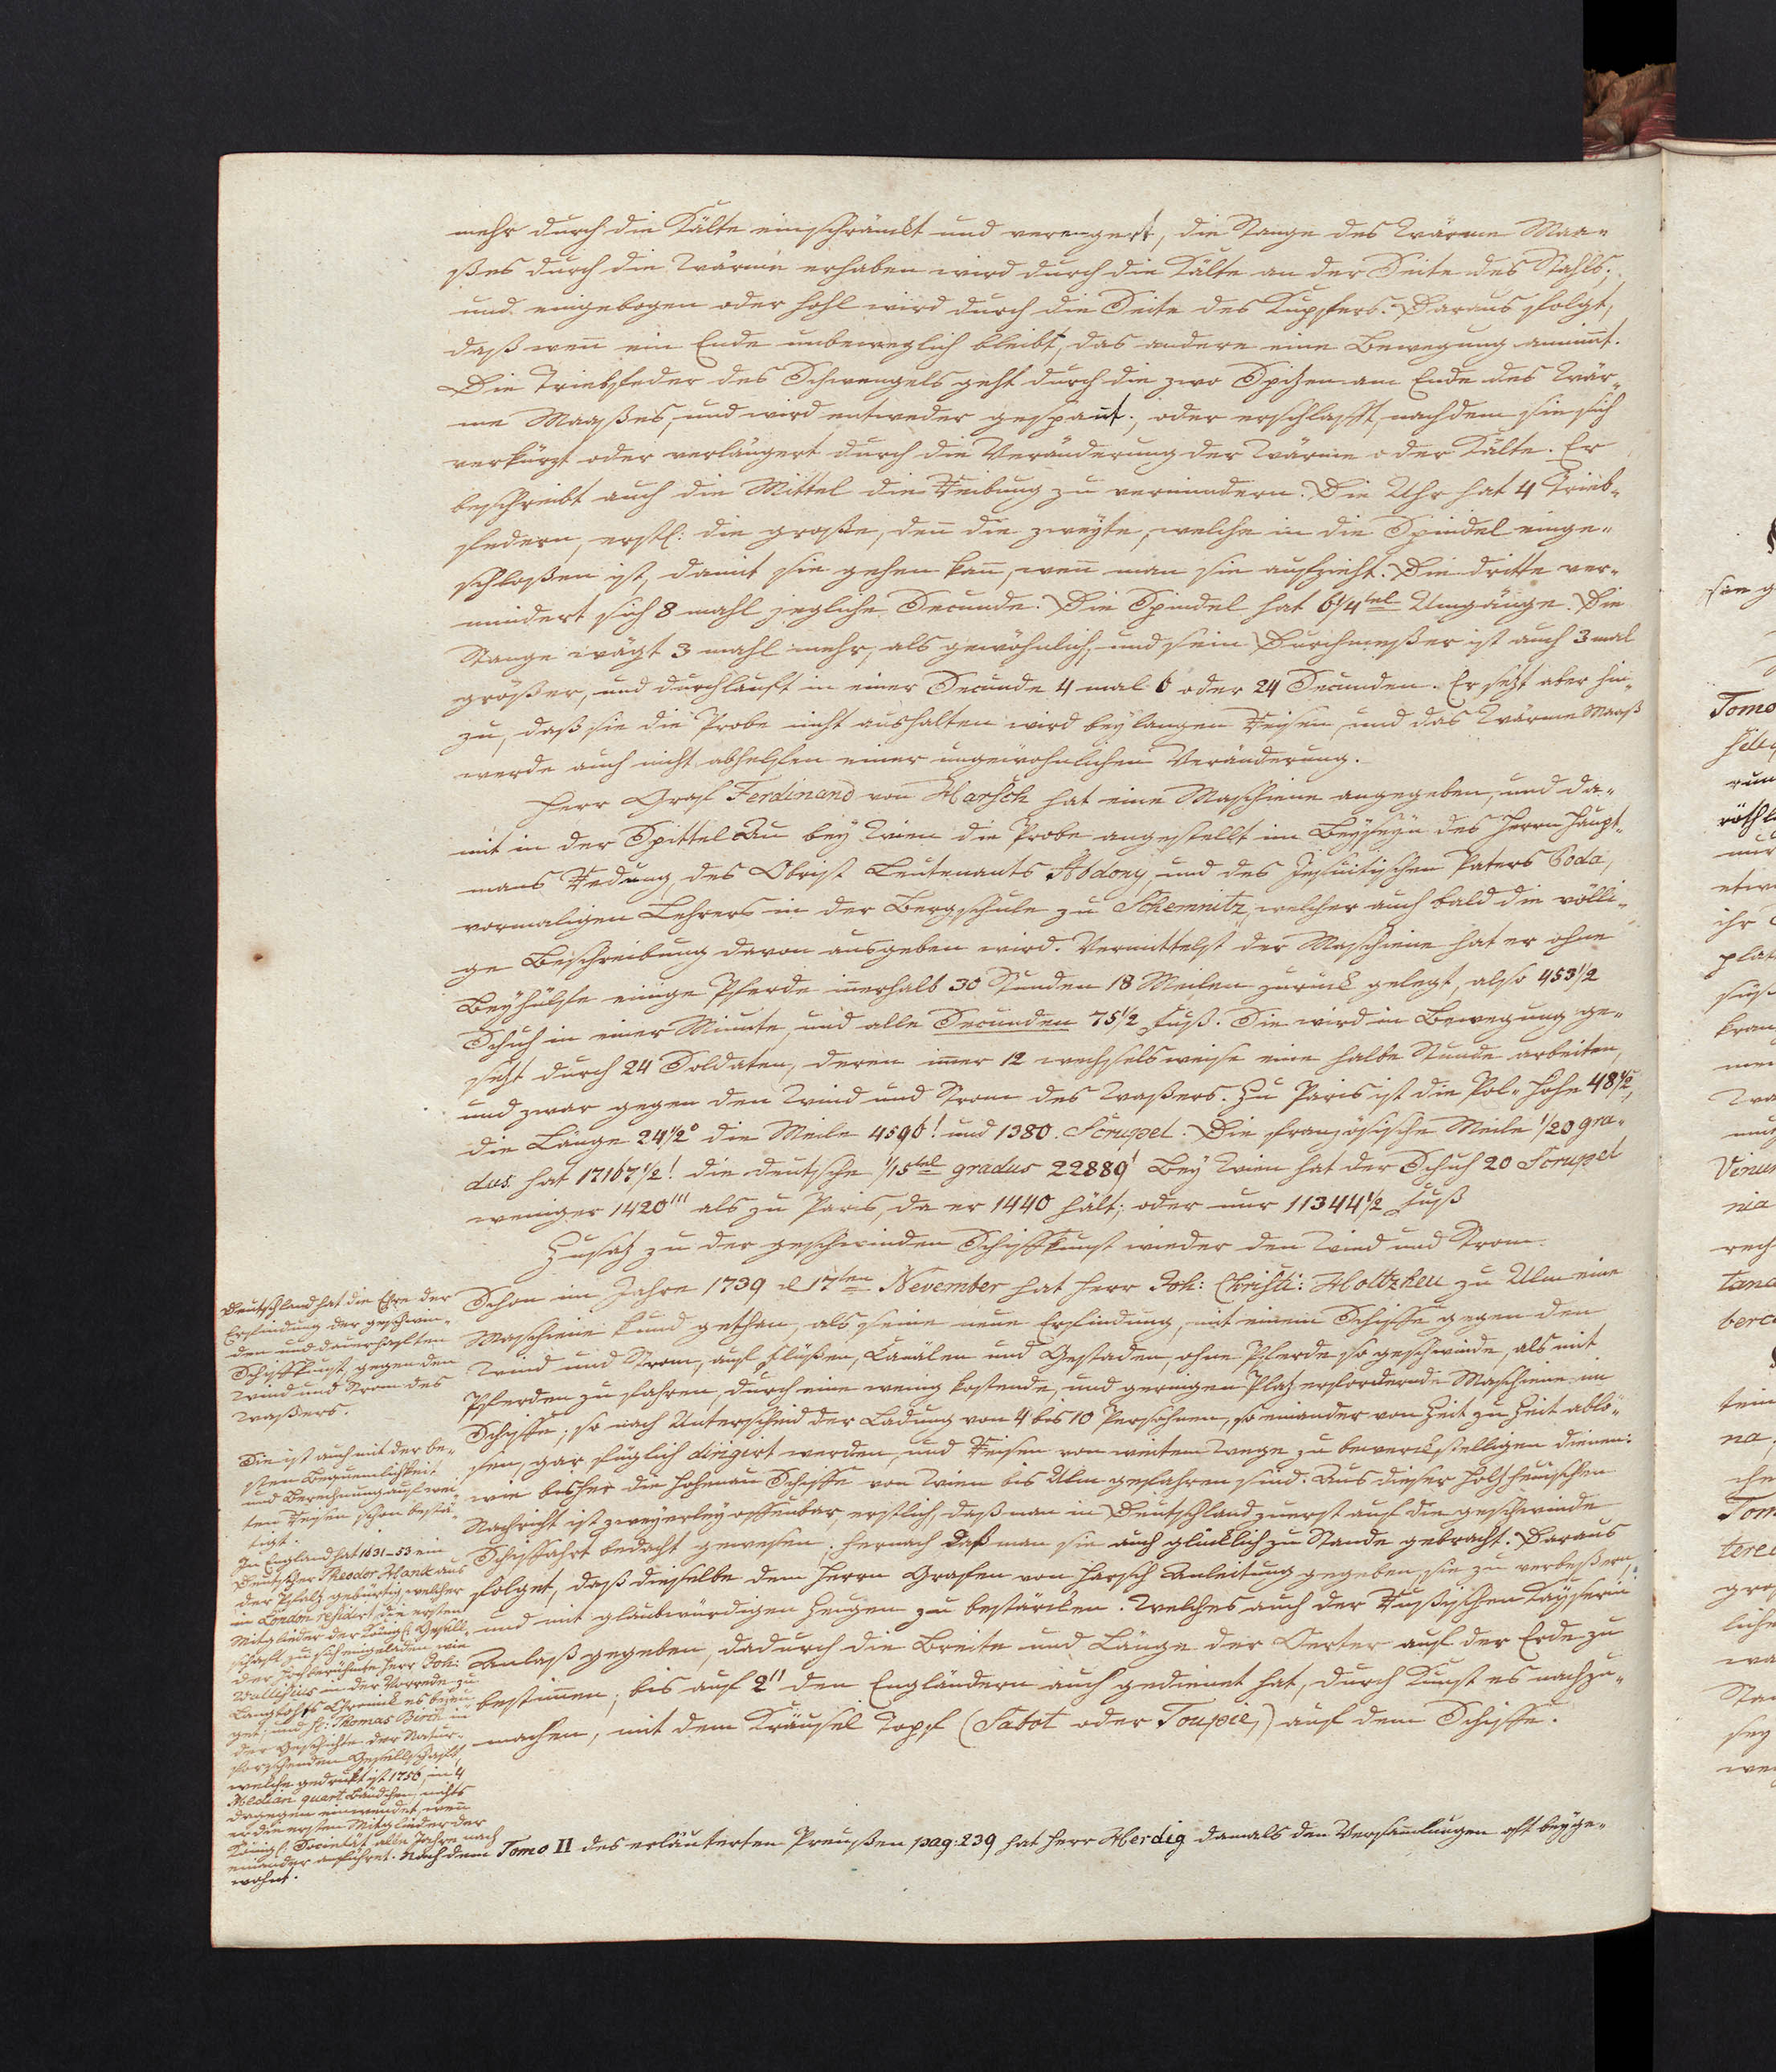 mehr durch die Kälte einschränckt und verengert, die Stange des Wärme Maa-
ßes durch die Wärme erhaben wird durch die Kälte an der Seite des Stahls;
und eingebogen oder hohl wird durch die Seite des Kupfers. Daraus folgt,
daß wen̄ ein Ende unbeweglich bleibt, das andere eine Bewegung annim̄t.
Die Triebfeder des Schwengels geht durch die zwo Spitzen am Ende des Wär-
me Maaßes, und wird entweder gespan̄t; oder erschlafft, nachdem sie sich
verkürzt oder verlängert durch die Veränderung der Wärme oder Kälte. Er
beschreibt auch die Mittel die Reibung zu vermindern. Die Uhr hat 4 Trieb-
federn, erstl: die große, den̄ die zweyte, welche in die Spindel einge-
schloßen ist, damit sie gehen kan̄, wen̄ man sie aufzieht. Die dritte ver-
mindert sich 8 mahl jegliche Secunde. Die Spindel hat 6¼tel Umgänge. Die
Stange wägt 3 mahl mehr, als gewöhnlich, und sein Durchmeßer ist auch 3 mal
größer, und durchlauft in einer Secunde 4 mal 6 oder 24 Secunden. Er setzt aber hin-
zu, daß sie die Probe nicht aushalten wird bey langen Reisen, und das Wärme Maaß
werde auch nicht abhelfen einer ungewöhnlichen Veränderung.
Herr Graf Ferdinand von Harsch hat eine Maschiene angegeben, und da-
mit in der Spittel Au bey Wien die Probe angestellt im Beyseyn des Herrn Haupt-
mans Redung, des Obrist Leutenants Abdony, und des Jesuitischen Paters Poda,
vormaligen Lehrers in der Bergschule zu Schemnitz, welcher auch bald die völli-
ge Beschreibung davon ausgeben wird. Vermittelst der Maschiene hat er ohne
Beyhülfe einige Pferde in̄erhalb 30 Stunden 18 Meilen zurück gelegt, also 453½
Schuh in einer Minute, und alle Secunden 75½ Fuß. Sie wird in Bewegung ge-
setzt durch 24 Soldaten, deren im̄er 12 wechselsweise eine halbe Stunde arbeiten,
und zwar gegen den Wind und Strom des Waßers. Zu Paris ist die Pol-Höhe 48½,
die Länge 24½° die Meile 4596! und 1380. Scrupel. Die französische Meile 1/20 gra-
dus hat 17167½! die deutsche 1/15tel gradus 22889' Bey Wien hat der Schuh 20 Scrupel
weniger 1420''' als zu Paris, da er 1440 hält; oder nur 11344½ Fuß
Zusatz zu der geschwinden Schiffkunst wieder den Wind und Strom.
Schon im Jahre 1739 d 17ten November hat Herr Joh: Christi: Holtzheu zu Ulm eine
Maschiene kund gethan, als seine neue Erfindung, mit einem Schiffe gegen den
Wind und Strom, auf Flüßen, Canälen und Gestaden, ohne Pferde so geschwinde, als mit
Pferden zu fahren, durch eine wenig kostende, und geringen Platz erfordernde Maschiene im
Schiffe; so nach Unterscheid der Ladung von 4 bis 10 Persohnen, so einander von Zeit zu Zeit ablö-
sen, gar füglich dirigirt werden, und Reisen von weitem Wege zu bewerckstelligen dienen:
wie bisher die Hohenau Schiffe von Wien bis Ulm gefahren sind. Aus dieser Holzheuischen
Nachricht ist zweyerley offenbar, erstlich, daß man in Deutschland zuerst auf die geschwinde
Schiffahrt bedacht gewesen; hernach daß man sie auch glücklich zu Stande gebracht. Daraus
folget, daß dieselbe dem Herrn Grafen von Harsch Anleitung gegeben, sie zu verbeßern,
und mit glaubwürdigen Zeugen zu bestärcken. Welches auch der Rußischen Kayserin
Anlaß gegeben, dadurch die Breite und Länge der Oerter auf der Erde zu
bestim̄en; bis auf 2'' den Engländern auch gedienet hat, durch Kunst es nachzu-
machen, mit dem Kräusel Topf (Sabot oder Toupie,) auf dem Schiffe.
Deutschland hat die Ehre der
Erfindung der geschwin-
den und dauerhaften
Schiffkunst, gegen den
Wind und Strom des
Waßers.
Sie ist auch mit der be-
sten Bequemlichkeit
und Berechnung auf wei-
ten Reisen schon bestä-
tigt.
In England hat 1631-53 ein
Deutscher Theodor Hank aus
der Pfaltz gebürtig, welcher
in London residirt, die ersten
Mitglieder der Königl: Gesell-
schaft zu sich eingeladen, wie
der hochberühmte Herr Joh:
Wallisius in der Vorrede zu
Langtofts Chronick es bezeu-
get; und H: Thomas Birch in
der Geschichte der Natur-
forschenden Gesellschaft,
welche gedruckt ist 1756, in 4
Median quart Bändchen, nichts
dagegen einwendet, wen̄
er die ersten Mitglieder der
Königl: Societät alle Jahre nach
einander anführet. Nach dem Tomo II des erläuterten Preußen pag: 239 hat Herr Herdig damals den Versam̄lungen oft beyge-
wohnt.